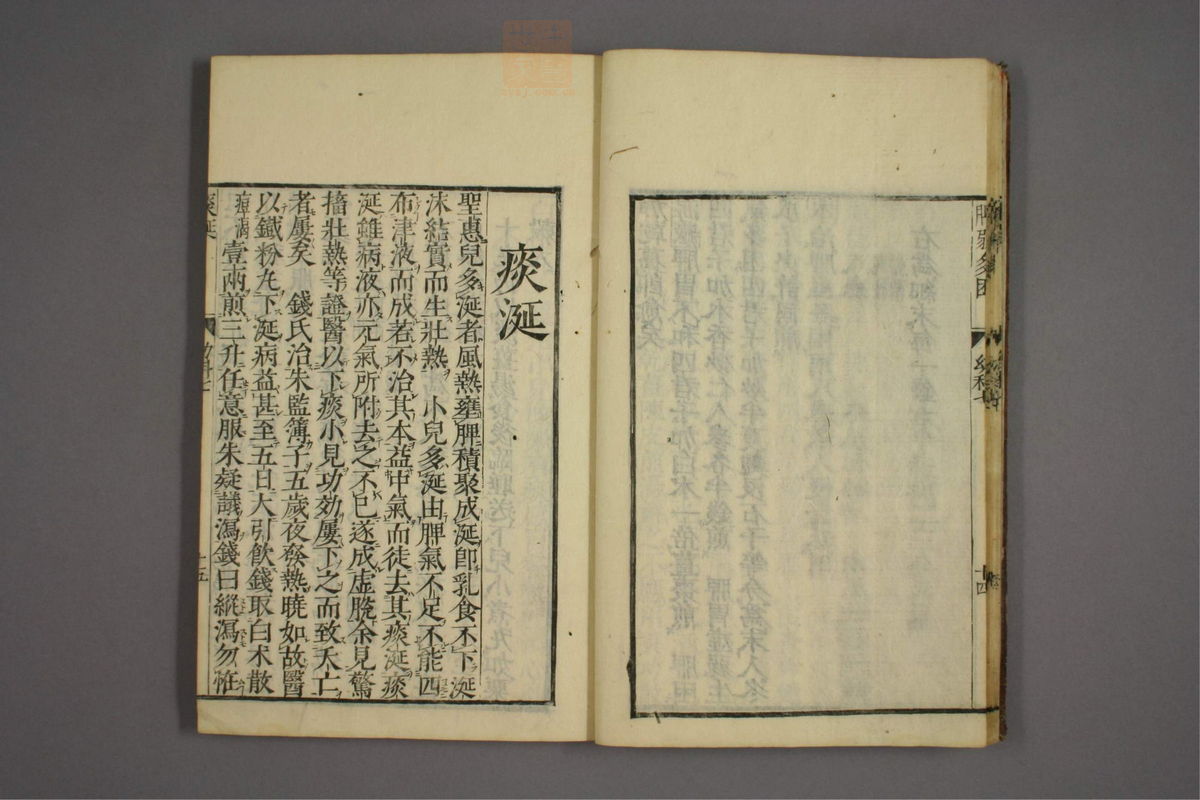 脾弱多困
幼科七
十四
痰涎
聖惠兒多涎者風熱壅脾積聚成涎即乳食不下涎
沫結實而生壯熱 小兒多涎由脾氣不足不能四
布津液而成若不治其本益中氣而徒去其痰涎痰
涎雖病液亦元氣所附去之不已遂成虛脫余見驚
搐壯熱等證醫以下痰小見功効屢下之而致夭亡
者屢矣 錢氏治朱監簿子五歲夜發熱曉如故醫
以鐵粉丸下涎病益甚至五日大引飲錢取白朮散
壹兩煎三升任意服朱疑議瀉錢曰縱瀉勿恠
痰涎
幼科七
十五